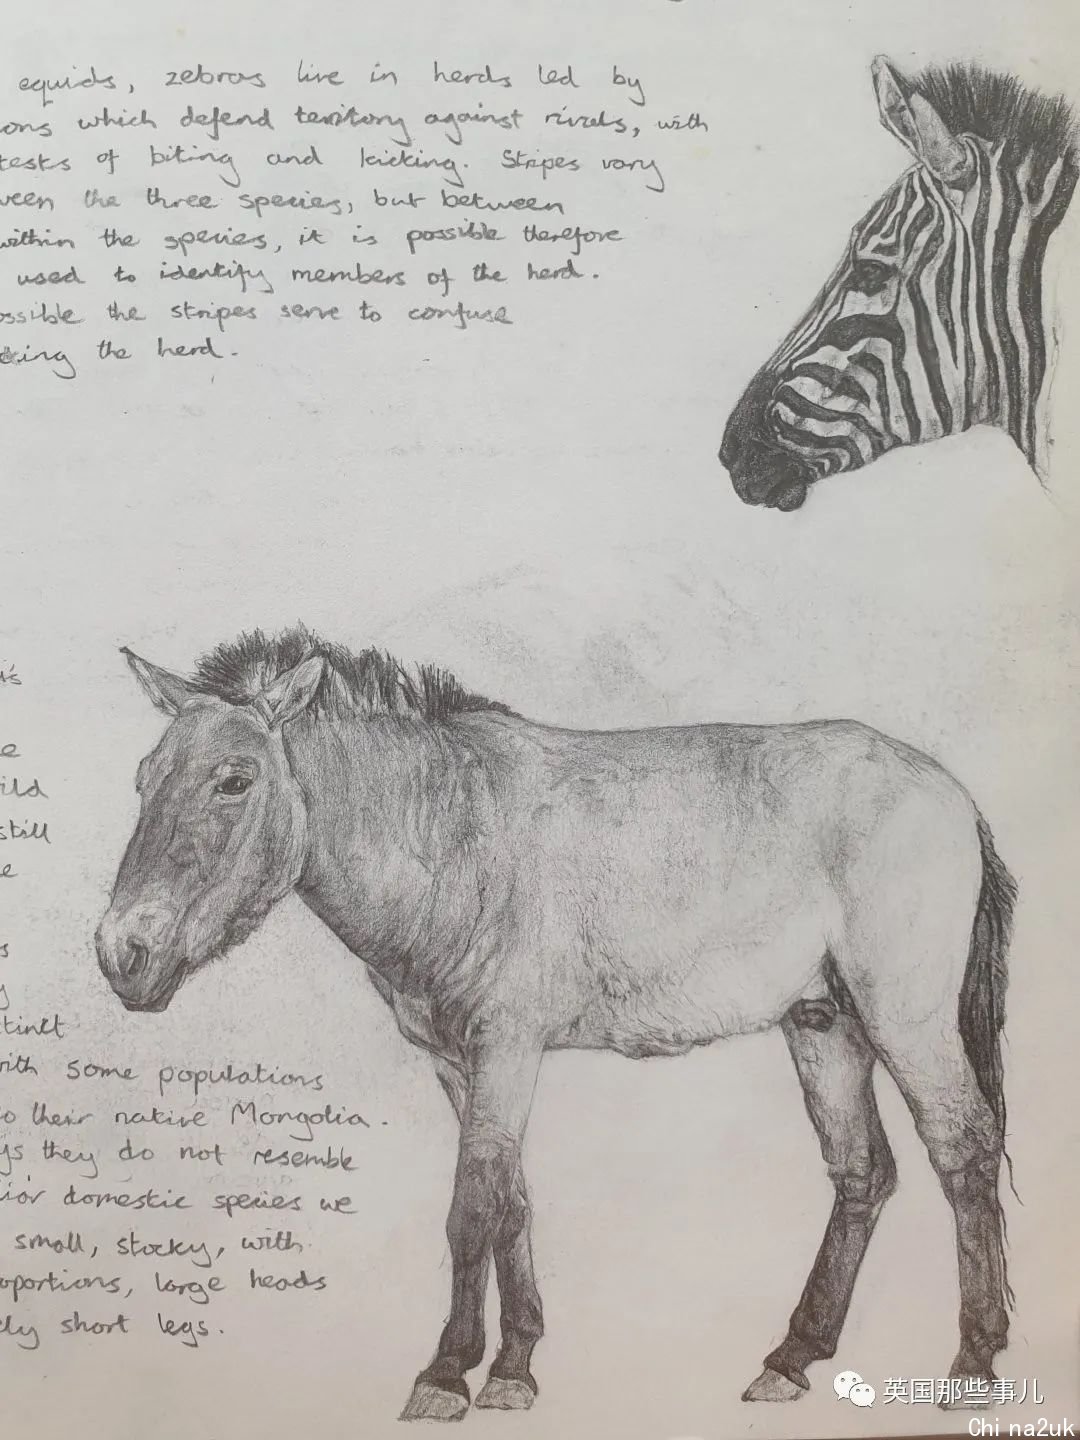 equids, zebras live in herds led by
ons which defend territory against rivals, with
tests of biting and kicking. Stripes vary
ween the three species, but between
within the species, it is possible therefore
used to identify members of the herd.
ossible the stripes serve to confuse
king the herd.
e
ild
still
e
s
y
tinct
with some populations
o their native Mongolia.
ys they do not resemble
ior domestic species we
small, stocky, with
oportions, large heads
ly short legs.
英国那些事儿
China2uk